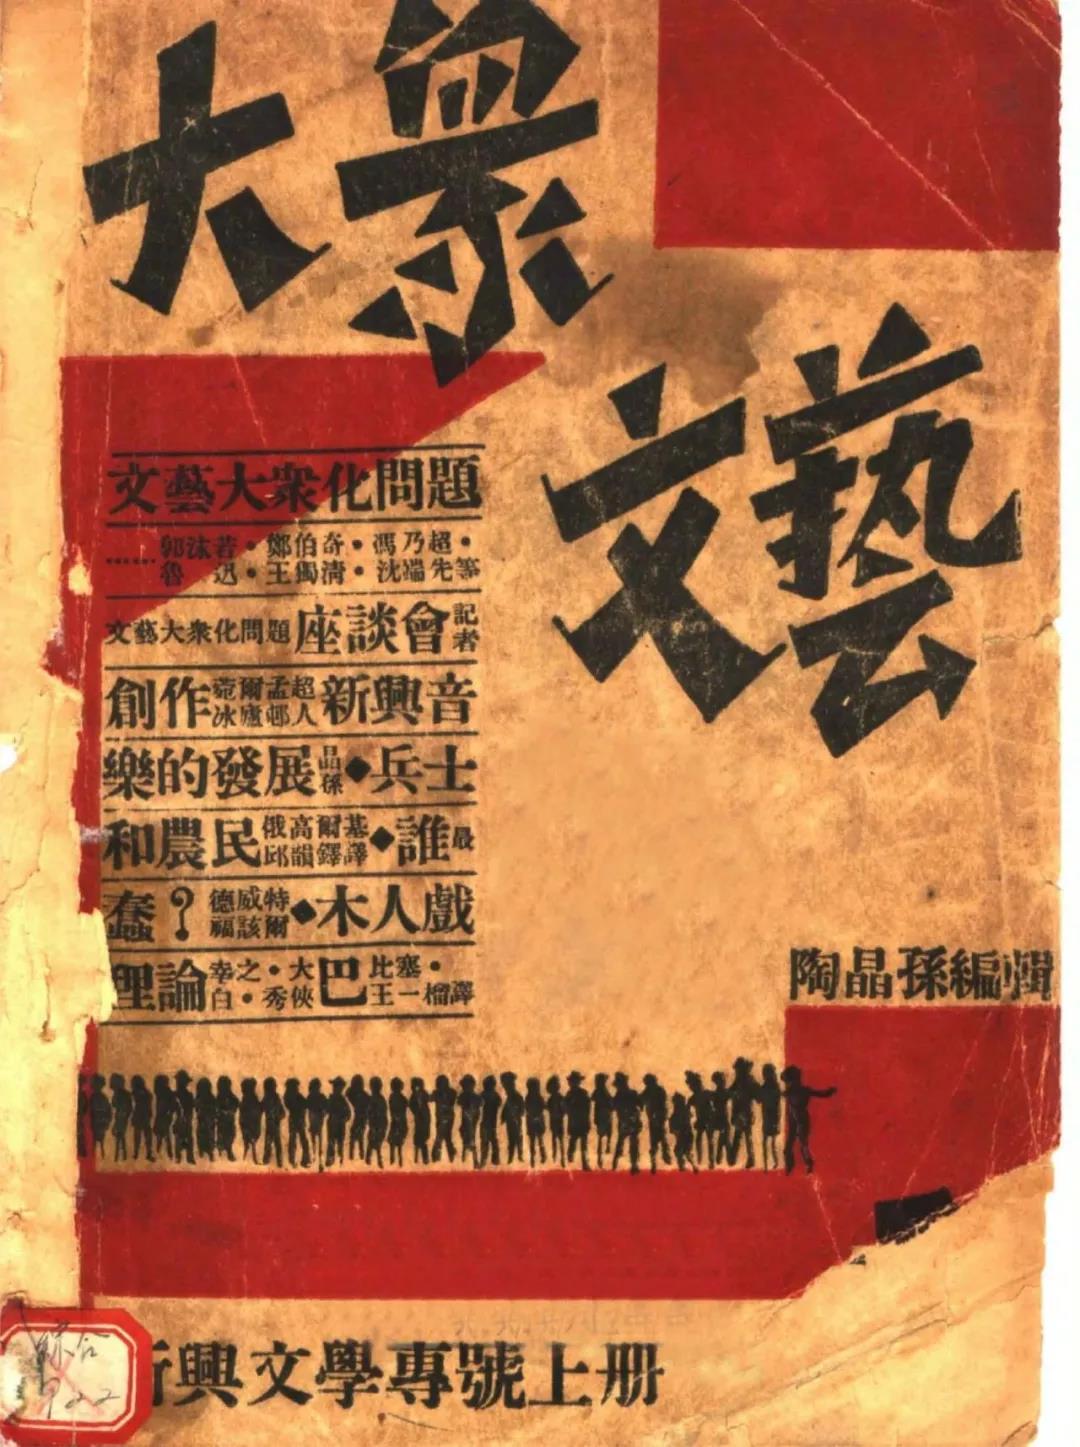 大衆
文藝
文藝大衆化問題
……郭沫若・鄭伯奇・馮乃超・
魯迅・王獨清・沈端先等
文藝大衆化問題 座談會 記者
創作 菀爾孟超 冰廬邨人 新興音
樂的發展 晶孫◆兵士
和農民 俄高爾基 邱韻鐸譯◆誰最
蠢？ 德威特 福該爾◆木人戲
理論 幸之・大白・秀俠 巴比塞・王一榴譯
陶晶孫編輯
興文學專號上册
綜合
922